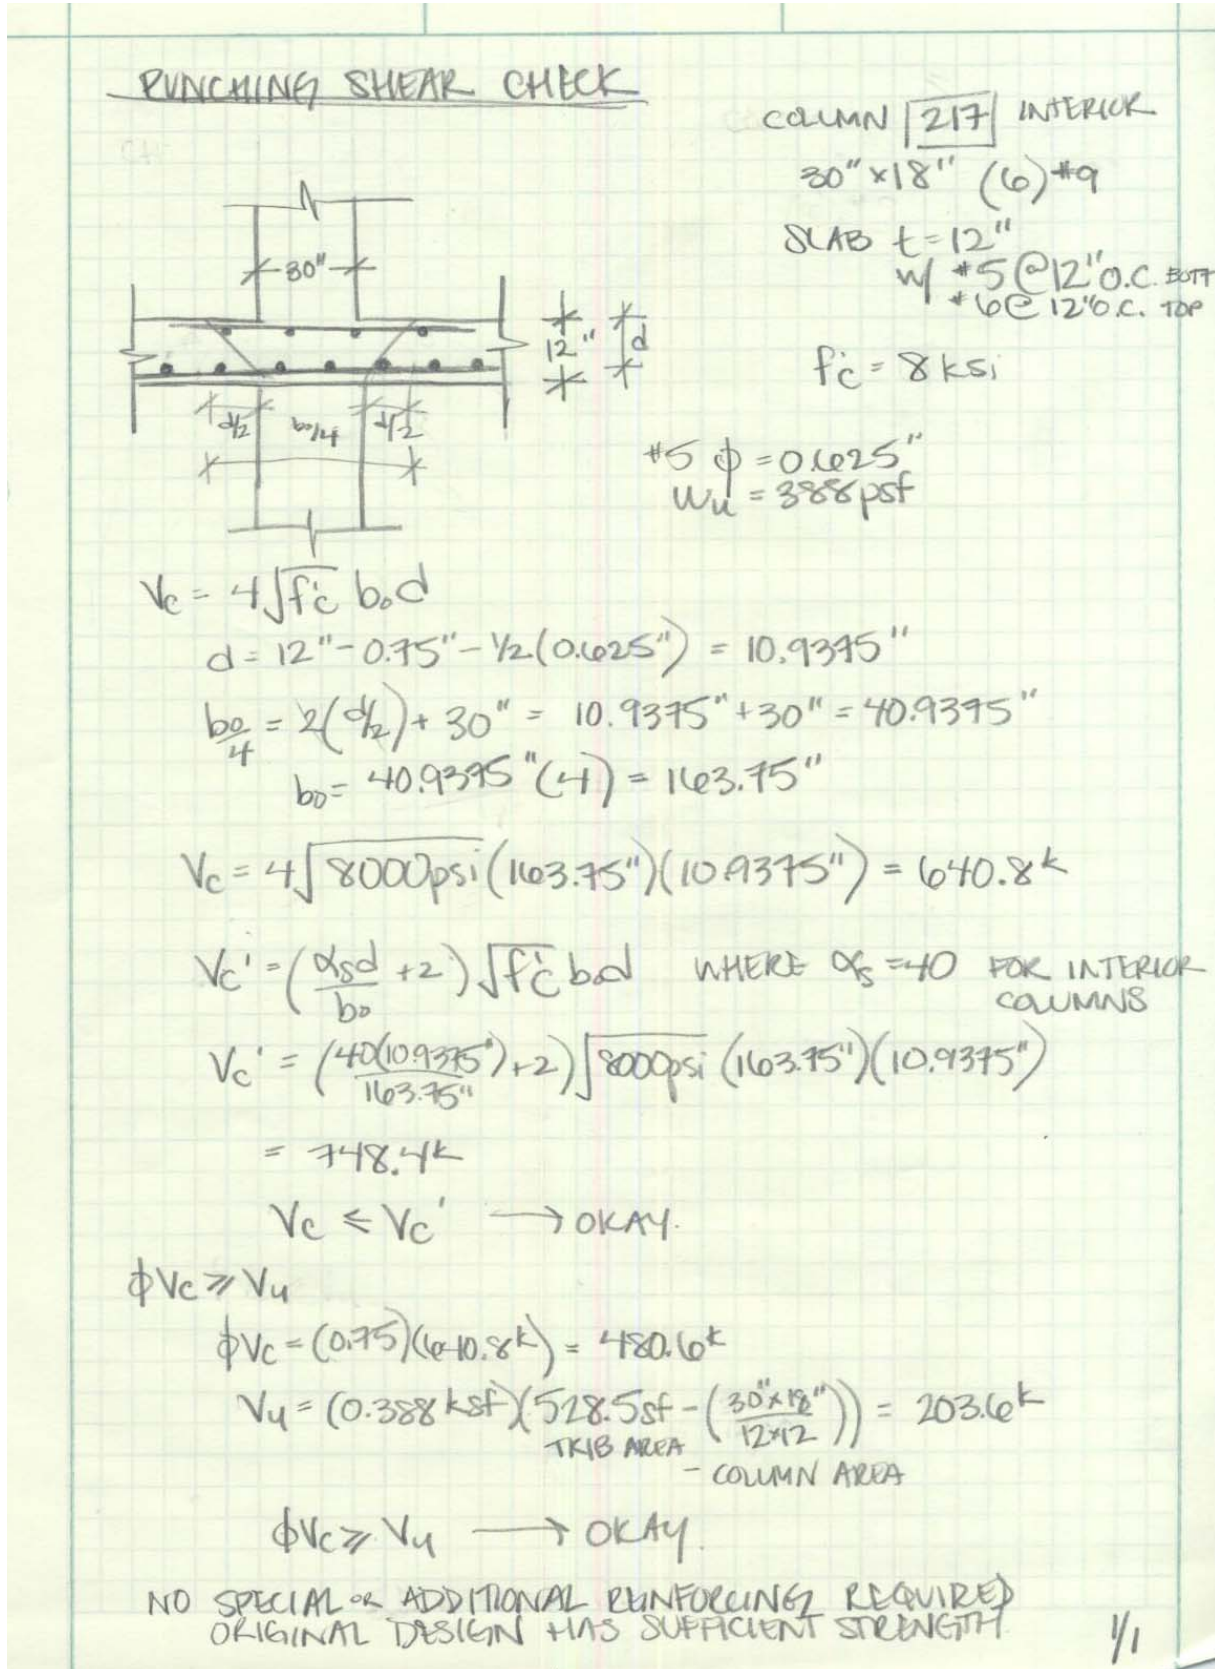 PUNCHING SHEAR CHECK
COLUMN 217 INTERIOR
30" x 18" (6) #9
SLAB t = 12"
w/ #5 @ 12" O.C. BOTT
#6 @ 12" O.C. TOP
30"
12" d
f'c = 8 ksi
d/2 bo/4 d/2
#5 ϕ = 0.625"
Wu = 388 psf
Vc = 4√f'c bod
d = 12" - 0.75" - 1/2(0.625") = 10.9375"
bo/4 = 2(d/2) + 30" = 10.9375" + 30" = 40.9375"
bo = 40.9375" (4) = 163.75"
Vc = 4√8000psi (163.75")(10.9375") = 640.8k
Vc' = (αsd/bo + 2)√f'c bod WHERE αs = 40 FOR INTERIOR
COLUMNS
Vc' = (40(10.9375")/163.75" + 2)√8000psi (163.75")(10.9375")
= 748.4k
Vc ≤ Vc' → OKAY.
ϕVc ≥ Vu
ϕVc = (0.75)(640.8k) = 480.6k
Vu = (0.388 ksf)(528.5sf - (30"x18"/12x12)) = 203.6k
TRIB AREA
- COLUMN AREA
ϕVc ≥ Vu → OKAY.
NO SPECIAL OR ADDITIONAL REINFORCING REQUIRED
ORIGINAL DESIGN HAS SUFFICIENT STRENGTH.
1/1